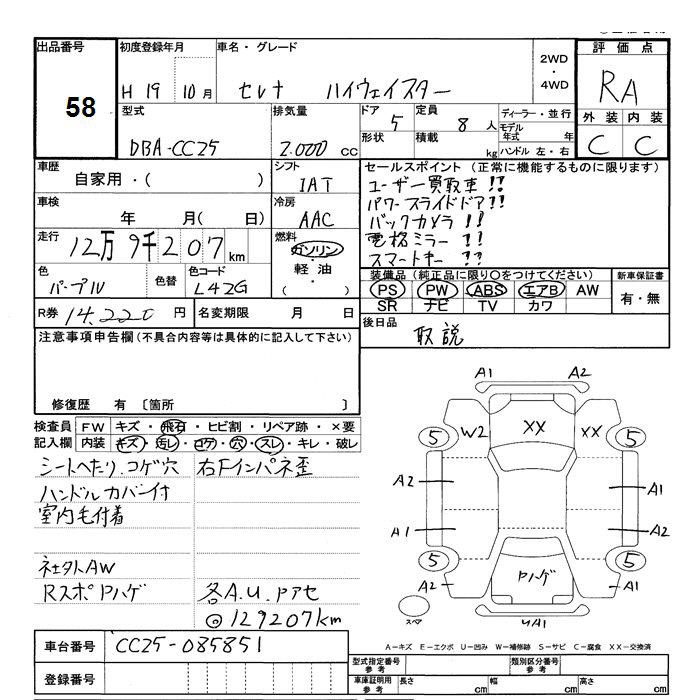 出品番号 58
初度登録年月 H 19 10 月
車名・グレード セレナ ハイウェイスター
2WD・4WD
評価点 RA
型式 DBA-CC25
排気量 2.000 cc
ドア 5
形状
定員 8 人
積載 kg
ディーラー・並行
モデル年式 年
ハンドル 左・右
外装 内装
C C
車歴 自家用・( )
シフト IAT
車検 年 月( 日)
冷房 AAC
走行 12万9千207 km
燃料 ガソリン・軽油・( )
色 パープル
色替
色コード L42G
R券 14,220 円
名変期限 月 日
セールスポイント (正常に機能するものに限ります)
ユーザー買取車!!
パワースライドドア!!
バックカメラ!!
電格ミラー!!
スマートキー!!
装備品(純正品に限り○をつけてください)
PS PW ABS エアB AW
SR ナビ TV カワ
新車保証書
有・無
後日品 取説
注意事項申告欄(不具合内容等は具体的に記入して下さい)
修復歴 有 〔箇所 〕
検査員記入欄
FW キズ・飛石・ヒビ割・リペア跡・×要
内装 キズ・汚レ・コゲ・穴・スレ・キレ・破レ
シートへたり.コゲ穴
ハンドルカバー付
室内毛付着
社外AW
RスポPハゲ
右Fインパネ歪
各A.U.Pアセ
◎129207km
A1 A2
5 W2 XX XX 5
A2 A1
A1 A2
5 5
A2 Pハゲ A1
スペア
UA1
A-キズ E-エクボ U-凹み W-補修跡 S-サビ C-腐食 XX-交換済
車台番号 CC25-085851
登録番号
型式指定番号 参考
類別区分番号 参考
車庫証明用 参考
長さ cm 幅 cm 高さ cm